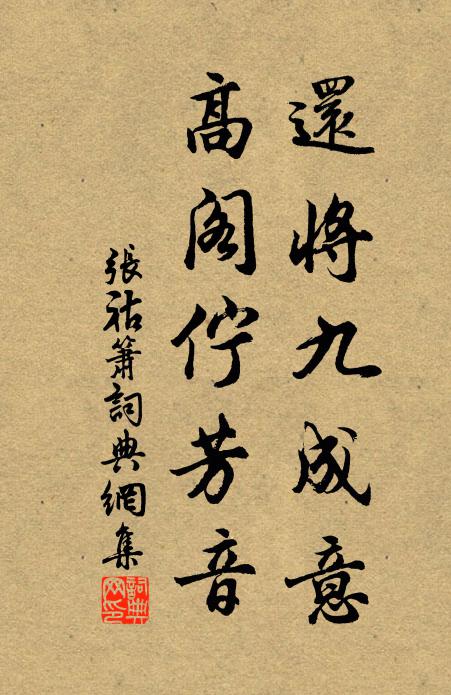 還將九成意
高閣佇芳音
張祜簫詞典網集
詞典網印